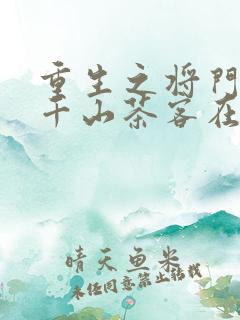 重生之将门
千山茶客在
晴天鱼米
未经同意禁止转载